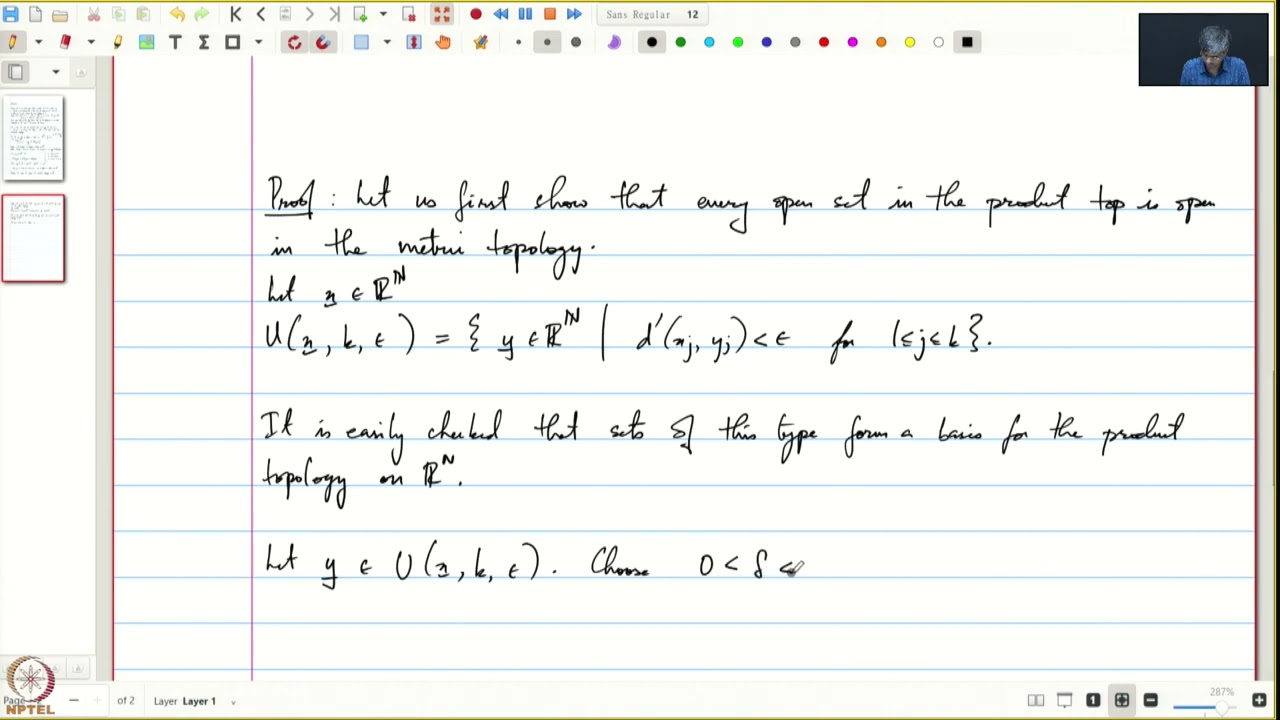 Sans Regular 12
Proof : Let us first show that every open set in the product top is open
in the metric topology.
Let x ∈ ℝ^ℕ
U(x, k, ε) = { y ∈ ℝ^ℕ | d'(xj, yj) < ε for 1≤j≤k }.
It is easily checked that sets of this type form a basis for the product
topology on ℝ^ℕ.
Let y ∈ U(x, k, ε). Choose 0 < δ <
Page
of 2
Layer Layer 1
287%
NPTEL